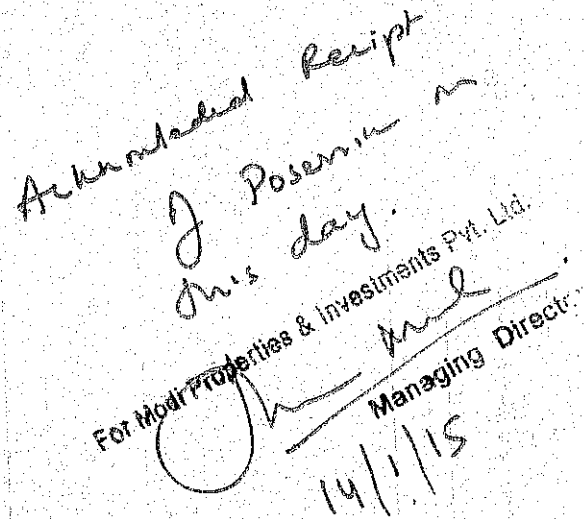 Acknowledged Receipt
of Possession on
this day.
For Modi Properties & Investments Pvt. Ltd.
Managing Director
14/1/15